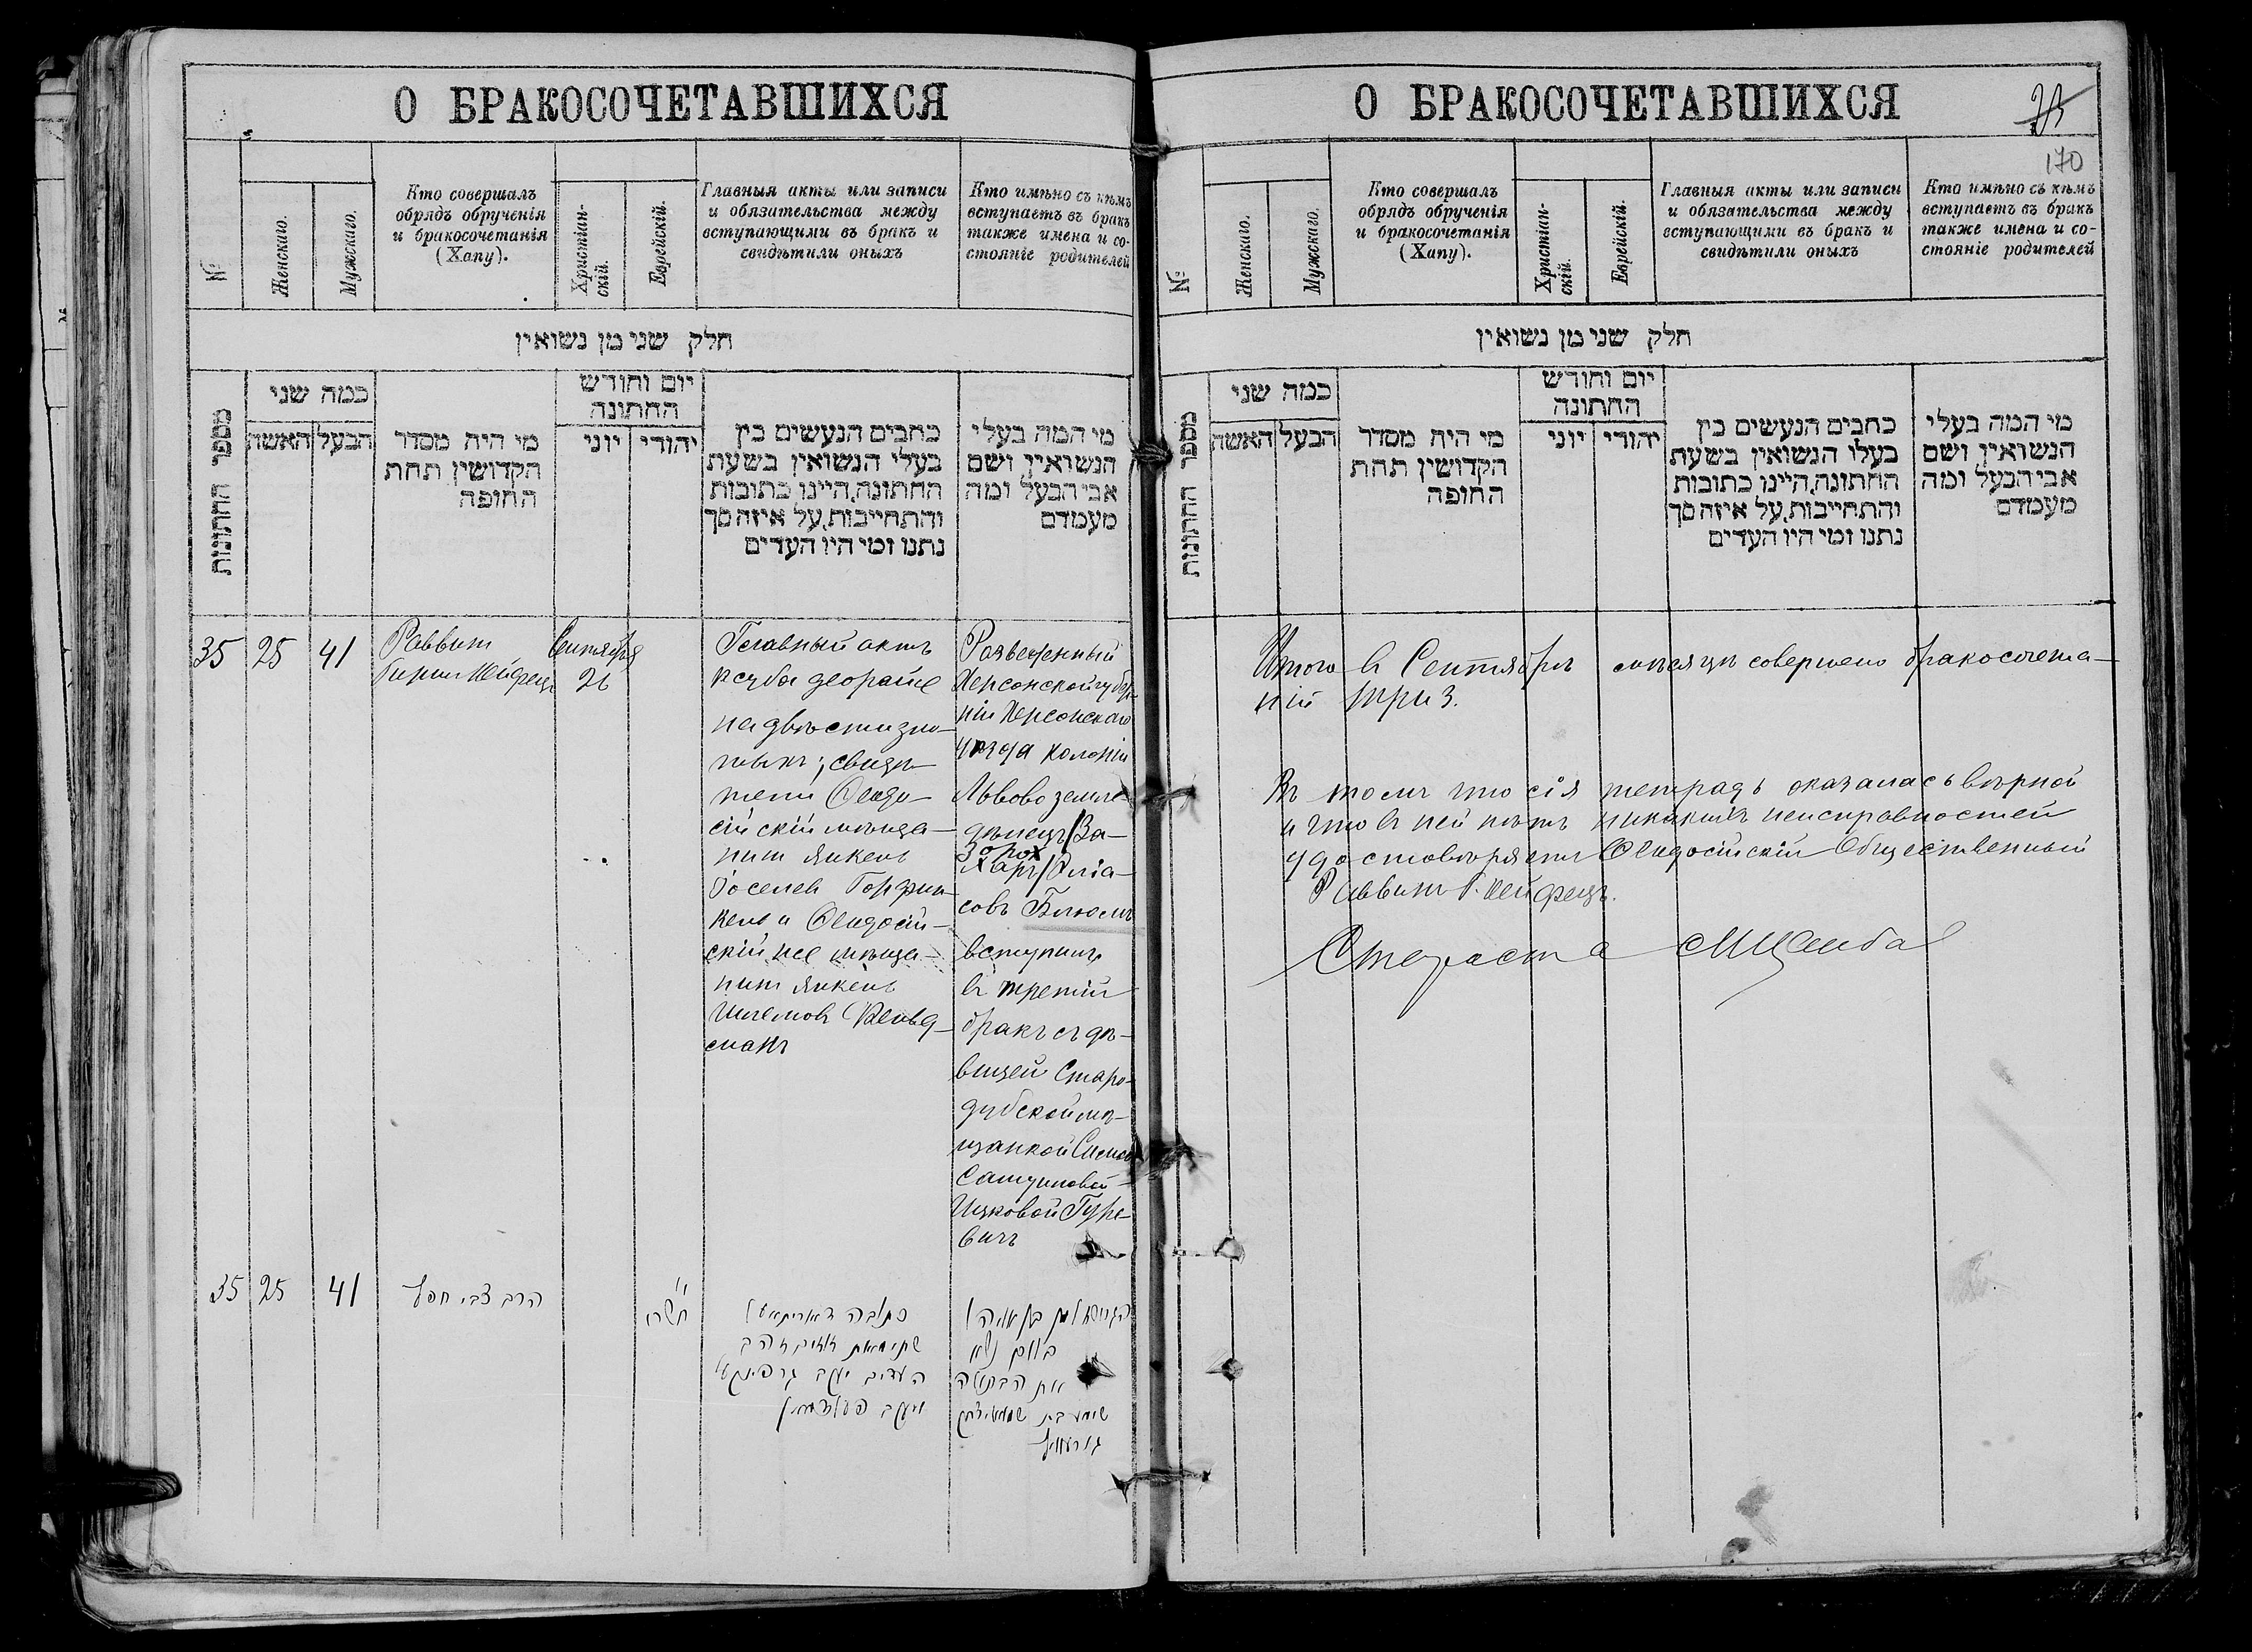 О БРАКОСОЧЕТАВШИХСЯ
№
Женскаго.
Мужскаго.
Кто совершалъ
обрядъ обрученія
и бракосочетанія
(Хапу).
Христіан-
скій.
Еврейскій.
Главныя акты или записи
и обязательства между
вступающими въ бракъ и
свидѣтили оныхъ
Кто имѣно съ кѣмъ
вступаетъ въ бракъ
также имена и со-
стояніе родителей
חלק שני מן נשואין
מספר החתונות
כמה שני
האשה
הבעל
מי היה מסדר
הקדושין תחת
החופה
יום וחודש
החתונה
יוני
יהודי
כתבים הנעשים בין
בעלי הנשואין בשעת
החתונה,היינו כתובות
והתחייבות,על איזה סך
נתנו ומי היו העדים
מי המה בעלי
הנשואין ושם
אבי הבעל ומה
מעמדם
35
25
41
Раввинъ
Гиршъ Хейфецъ
Сентября
26
Главный актъ
ксуба деорайсе
на двѣсти зло-
тыхъ; свидѣ-
тели Ѳеодо-
сійскій мѣща-
нинъ Янкель
Іоселев Горфин-
кель и Ѳеодосій-
скій же мѣща-
нинъ Янкель
Шлемовъ Фельд-
манъ
Разведенный
Херсонской губер-
ніи Херсонскаго
уѣзда колоніи
Львово земле-
дѣлецъ /За-
Зорох
харъ/ Эліа-
совъ Блюмъ
вступилъ
въ третій
бракъ съ дѣ-
вицей Старо-
дубской мѣ-
щанкой Симой
Самуиловой-
Ицковой Гуре-
вичъ
35
25
41
הרב צבי חפץ
י"
תשרי
כתובה דאורייתא
שתי מאות זוזים זהב
העדים יעקב גרפינקל
ויעקב פעלדמאן
בלום נשא
את הבתולה
שימע בת
גורעוויץ
О БРАКОСОЧЕТАВШИХСЯ
170
№
Женскаго.
Мужскаго.
Кто совершалъ
обрядъ обрученія
и бракосочетанія
(Хапу).
Христіан-
скій.
Еврейскій.
Главныя акты или записи
и обязательства между
вступающими въ брак и
свидѣтили оныхъ
Кто имѣно съ кѣмъ
вступаетъ въ бракъ
также имена и со-
стояніе родителей
חלק שני מן נשואין
מספר החתונות
כמה שני
האשה
הבעל
מי היה מסדר
הקדושין תחת
החופה
יום וחודש
החתונה
יוני
יהודי
כתבים הנעשים בין
בעלי הנשואין בשעת
החתונה,היינו כתובות
והתחייבות,על איזה סך
נתנו ומי היו העדים
מי המה בעלי
הנשואין ושם
אבי הבעל ומה
מעמדם
Итого въ Сентябрѣ мѣсяцѣ совершено бракосочета-
ній три 3.
Въ томъ что сія тетрадь оказалась вѣрной
и что въ ней нѣтъ никакихъ неисправностей
удостовѣряетъ Ѳеодосійскій Общественный
Раввинъ Г. Хейфецъ.
Староста